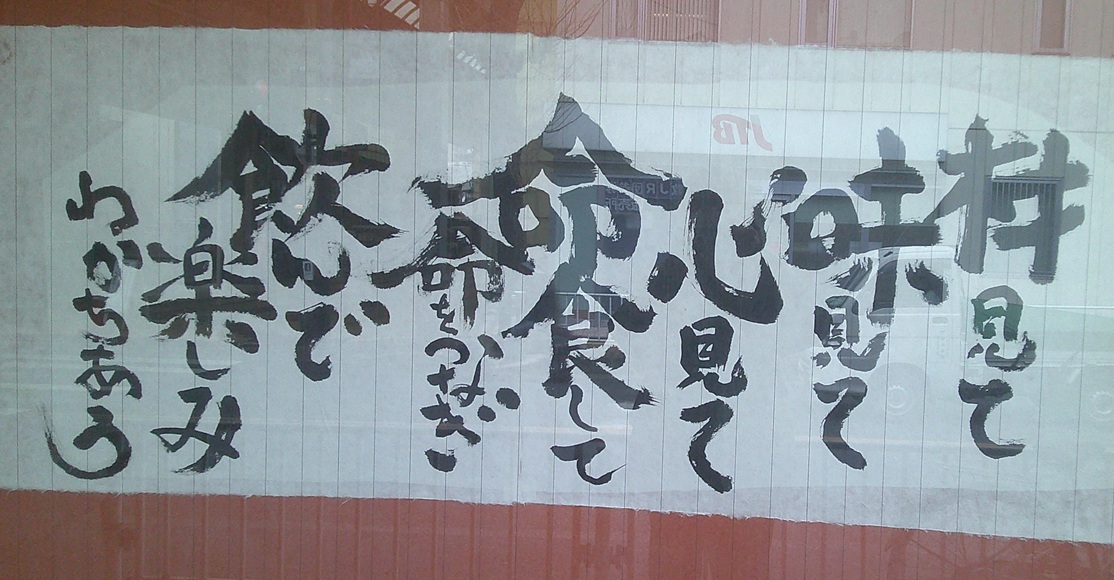 材見て
味見て
心見て
命食して
命をつなぎ
飲んで
楽しみ
わかちあう
JTB